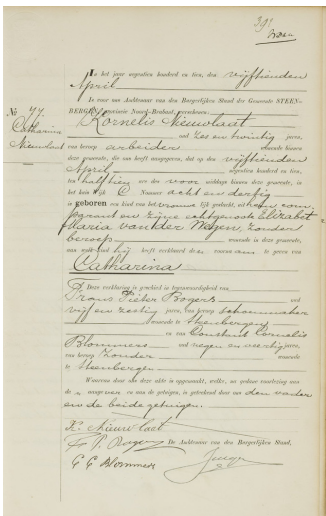 In het jaar negentien honderd en tien, den vijftienden
April
is voor ons Ambtenaar van den Burgerlijken Stand der Gemeente STEEN-
BERGEN, provincie Noord-Brabant, verschenen:
Kornelis Nieuwlaat
oud zes en twintig jaren,
No. 77
Catharina
Nieuwlaat
van beroep arbeider wonende binnen
deze gemeente, die ons heeft aangegeven, dat op den vijftienden
April negentien honderd en tien,
ten half tien ure des voor middags binnen deze gemeente, in
het huis wijk C Nummer acht en dertig
is geboren een kind van het vrouwelijk geslacht, uit hem com-
parant en zijne echtgenoote Elizabeth
Maria van der Wegen, zonder
beroep wonende in deze gemeente,
aan welk kind hij heeft verklaard den voornaam te geven van
Catharina
Deze verklaring is geschied in tegenwoordigheid van
Frans Pieter Bogers oud
vijf en zestig jaren, van beroep schoenmaker
wonende te Steenbergen
en van Constant Cornelis
Blommers oud negen en veertig jaren,
van beroep zonder wonende
te Steenbergen
Waarvan door ons deze akte is opgemaakt, welke, na gedane voorlezing aan
de aangever en aan de getuigen, is geteekend door ons den vader
en de beide getuigen.
K. Nieuwlaat
F. P. Bogers
De Ambtenaar van den Burgerlijken Stand,
C C Blommers